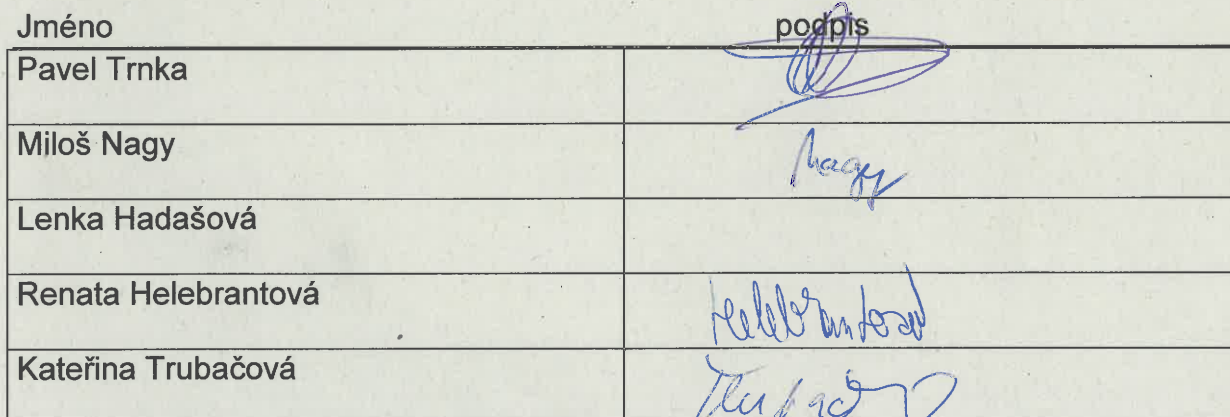 Jméno podpis
Pavel Trnka
Miloš Nagy Nagy
Lenka Hadašová
Renata Helebrantová Helebrantová
Kateřina Trubačová